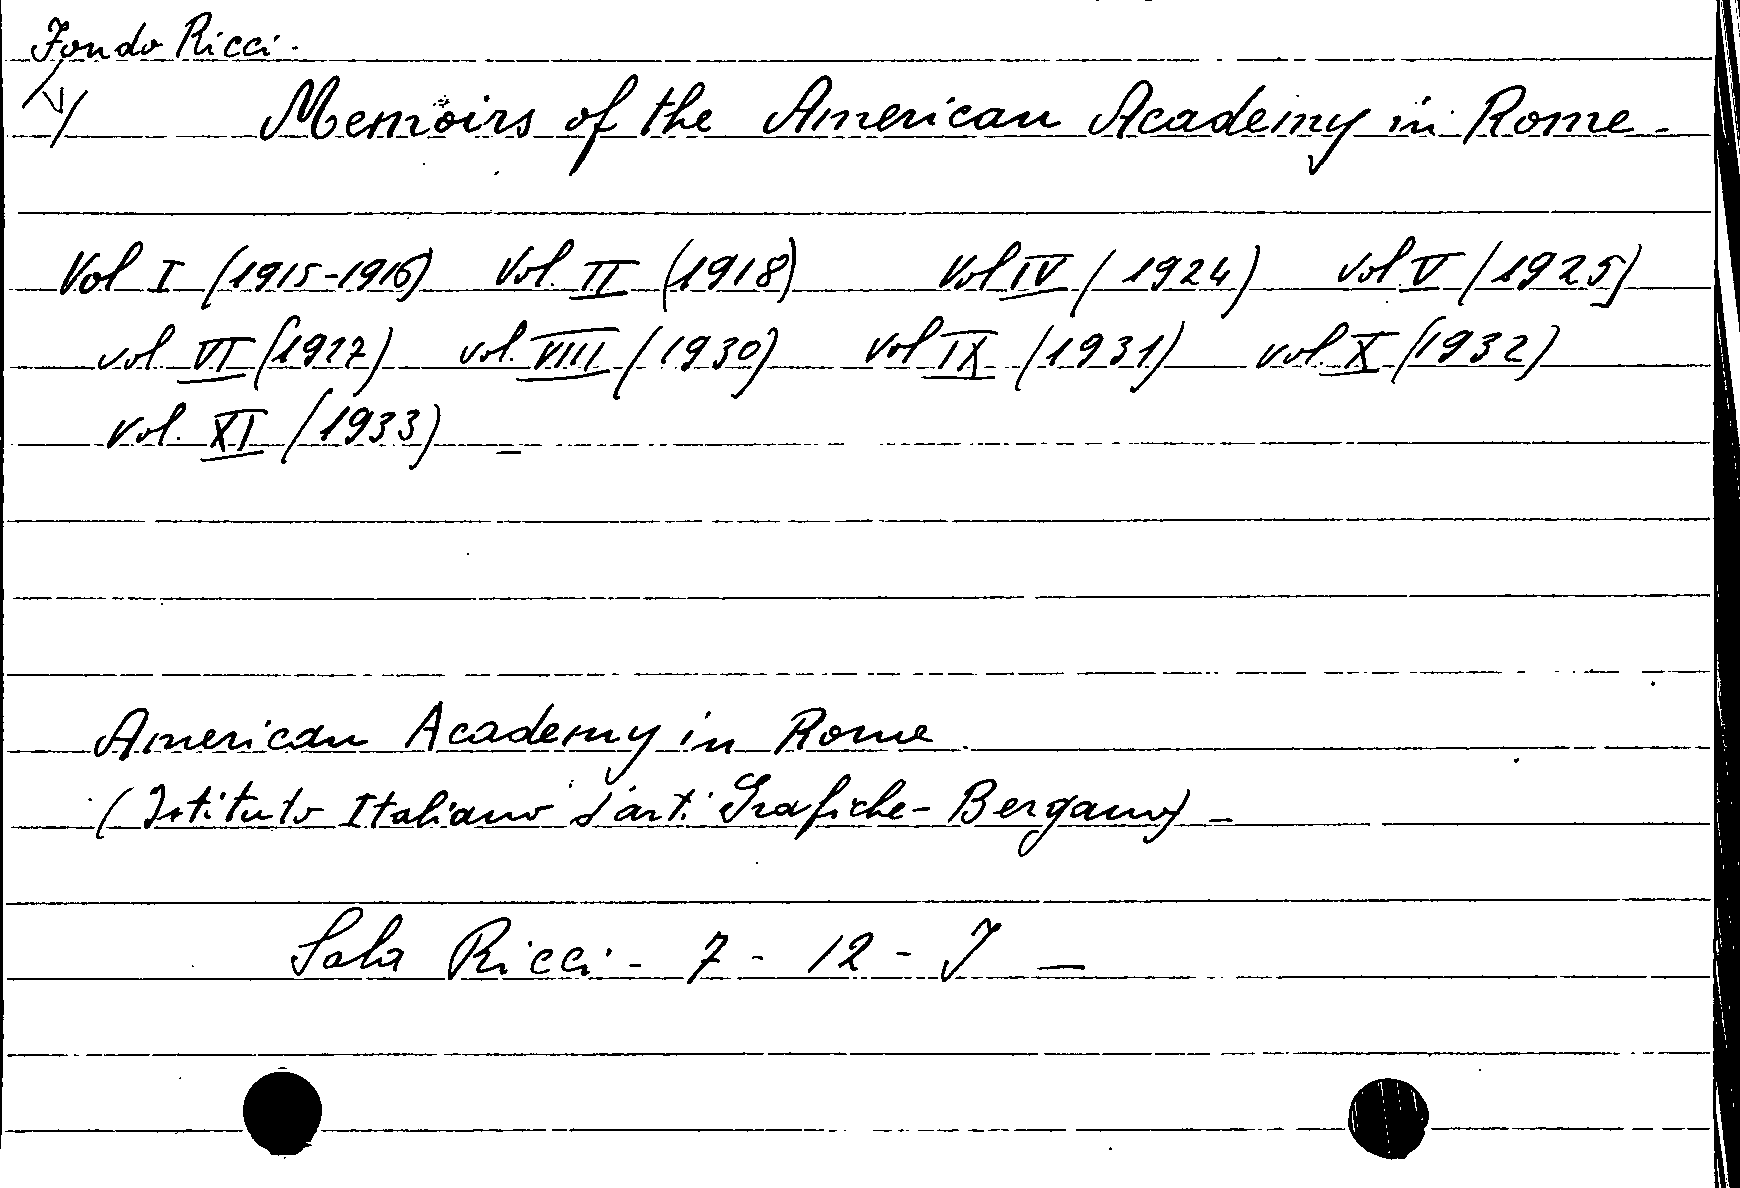 Fondo Ricci.
Memoirs of the American Academy in Rome.
Vol I (1915-1916) Vol. II (1918) Vol IV (1924) Vol V (1925)
vol VI (1927) vol. VIII (1930) vol IX (1931) vol. X (1932)
vol. XI (1933) -
American Academy in Rome.
(Istituto Italiano d'arti Grafiche - Bergamo) -
Sala Ricci - 7 - 12 - J -